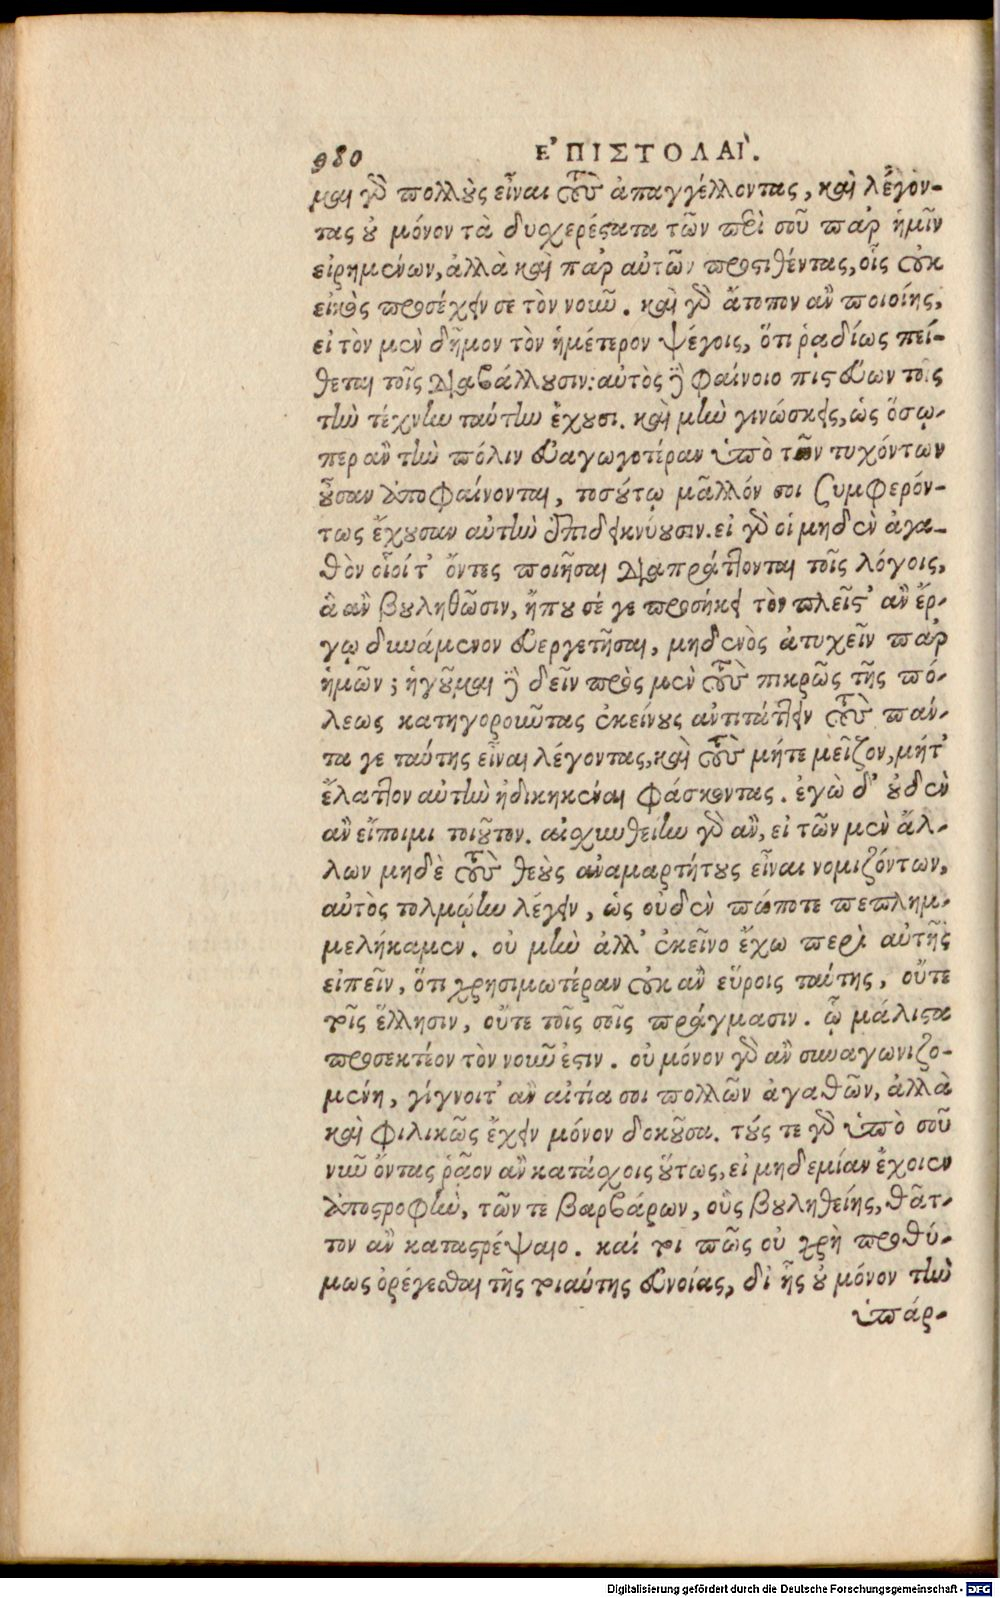 980 ΕʼΠΙΣΤΟΛΑῚ.
μαι γὸ πολλοὺς εἶναι τοὺς ἀπαγγέλλοντας, καὶ λέγον-
τας οὐ μόνον τὰ δυσχερέστατα τῶν περὶ σοῦ παρ ἡμῖν
εἰρημένων, ἀλλὰ καὶ παρ αὐτῶν προστιθέντας, οἷς οὐκ
εἰκὸς προσέχειν σε τὸν νοῦν. καὶ γὸ ἄτοπον ἂν ποιοίης,
εἰ τὸν μὲν δῆμον τὸν ἡμέτερον ψέγοις, ὅτι ῥᾳδίως πεί-
θεται τοῖς διαβάλλουσιν: αὐτὸς δὲ φαίνοιο πιστεύων τοῖς
τὴν τέχνην ταύτην ἔχουσι. καὶ μὴν γινώσκεις, ὡς ὅσῳ-
περ ἂν τὴν πόλιν εὐαγωγοτέραν ὑπὸ τῶν τυχόντων
οὖσαν ἀποφαίνονται, τοσούτῳ μᾶλλόν σοι ξυμφερόν-
τως ἔχουσαν αὐτὴν ἐπιδεικνύουσιν. εἰ γὸ οἱ μηδὲν ἀγα-
θὸν οἷοί τ' ὄντες ποιῆσαι διαπράττονται τοῖς λόγοις,
ἃ ἂν βουληθῶσιν, ἤπου σέ γε προσήκει τὸν πλεῖστ' ἂν ἔρ-
γῳ δυνάμενον εὐεργετῆσαι, μηδενὸς ἀτυχεῖν παρ
ἡμῶν; ἡγοῦμαι δὲ δεῖν πρὸς μὲν τοὺς πικρῶς τῆς πό-
λεως κατηγοροῦντας ἐκείνους ἀντιτάττειν τοὺς πάν-
τα γε ταύτης εἶναι λέγοντας, καὶ τοὺς μήτε μεῖζον, μήτ'
ἔλαττον αὐτὴν ἠδικηκέναι φάσκοντας. ἐγὼ δ' οὐδὲν
ἂν εἴποιμι τοιοῦτον. αἰσχυνθείην γὸ ἂν, εἰ τῶν μὲν ἄλ-
λων μηδὲ τοὺς θεοὺς ἀναμαρτήτους εἶναι νομιζόντων,
αὐτὸς τολμῴην λέγειν, ὡς οὐδὲν πώποτε πεπλημ-
μελήκαμεν. οὐ μὴν ἀλλ' ἐκεῖνο ἔχω περὶ αὐτῆς
εἰπεῖν, ὅτι χρησιμωτέραν οὐκ ἂν εὕροις ταύτης, οὔτε
τοῖς ἕλλησιν, οὔτε τοῖς σοῖς πράγμασιν. ᾧ μάλιστα
προσεκτέον τὸν νοῦν ἐστιν. οὐ μόνον γὸ ἂν συναγωνιζο-
μένη, γίγνοιτ' ἂν αἰτία σοι πολλῶν ἀγαθῶν, ἀλλὰ
καὶ φιλικῶς ἔχειν μόνον δοκοῦσα. τούς τε γὸ ὑπὸ σοῦ
νῦν ὄντας ῥᾷον ἂν κατάσχοις οὕτως, εἰ μηδεμίαν ἔχοιεν
ἀποστροφὴν, τῶν τε βαρβάρων, οὓς βουληθείης, θᾶτ-
τον ἂν καταστρέψαιο. καί τοι πῶς οὐ χρὴ προθύ-
μως ὀρέγεσθαι τῆς τοιαύτης εὐνοίας, δι ἧς οὐ μόνον τὴν
ὑπάρ-
Digitalisierung gefördert durch die Deutsche Forschungsgemeinschaft - DFG